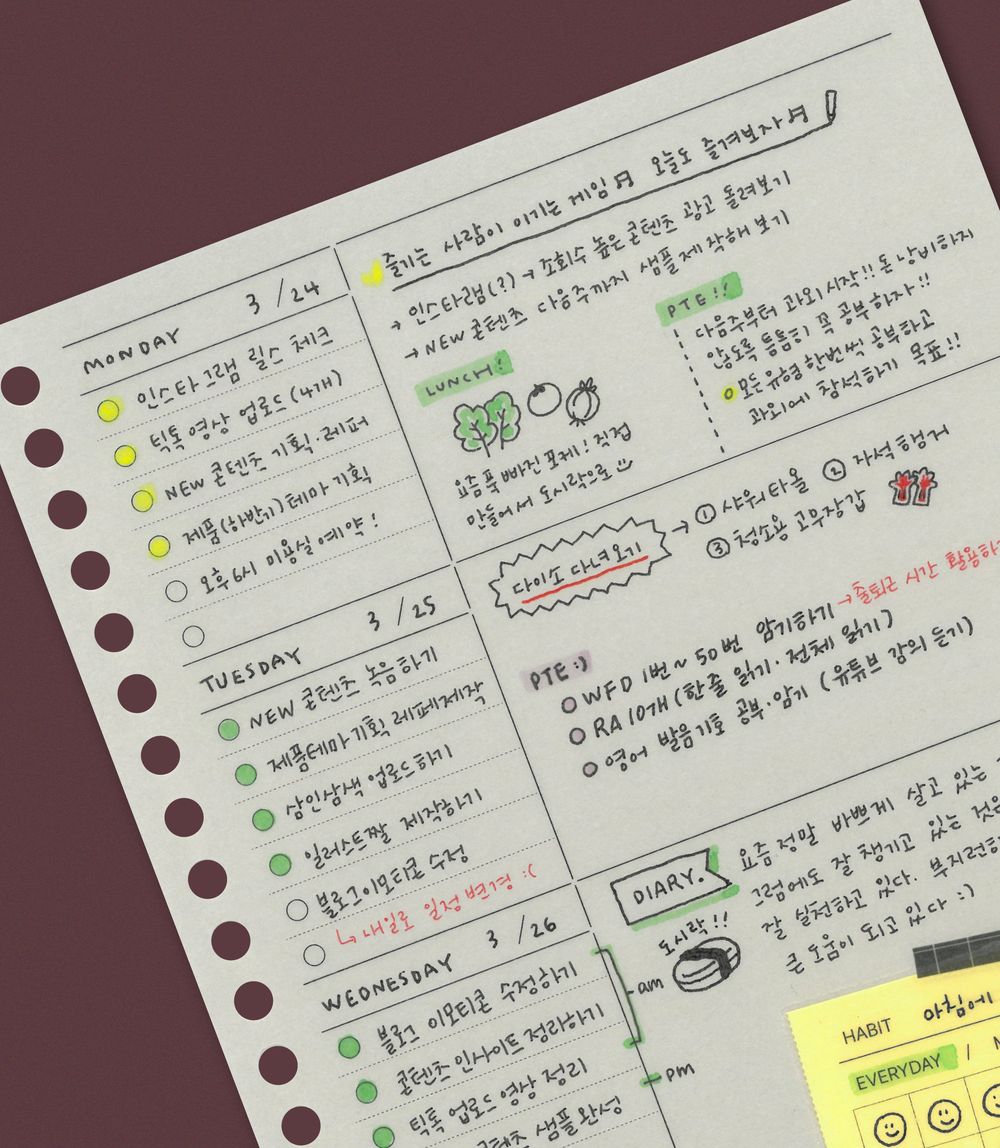 즐기는 사람이 이기는 게임♬ 오늘도 즐겨보자♬
→ 인스타램(?) → 조회수 높은 콘텐츠 광고 돌려보기
→ NEW 콘텐츠 다음주까지 샘플제작해 보기
LUNCH!
요즘 푹 빠진 포케! 직접
만들어서 도시락으로
PTE!!
다음주부터 과외 시작!! 돈 낭비하지
않도록 틈틈히 꼭 공부하자!!
모든 유형 한번씩 공부하고
과외에 참석하기 목표!!
MONDAY 3/24
인스타그램 릴스 체크
틱톡 영상 업로드 (4개)
NEW 콘텐츠 기획·레퍼
제품(하반기) 테마 기획
오후 6시 미용실 예약!
다이소 다녀오기
→ ① 샤워타올 ② 자석 행거
③ 청소용 고무장갑
PTE :)
WFD 1번 ~ 50번 암기하기 → 출퇴근 시간 활용하
RA 10개 (한 줄 읽기·전체 읽기)
영어 발음기호 공부·암기 (유튜브 강의 듣기)
TUESDAY 3/25
NEW 콘텐츠 녹음하기
제품테마기획 레페제작
삼인삼색 업로드하기
일러스트짤 제작하기
블로그이모티콘 수정
↳ 내일로 일정변경 :(
DIARY.
요즘 정말 바쁘게 살고 있는
그럼에도 잘 챙기고 있는 것은
잘 실천하고 있다. 부지런하
큰 도움이 되고 있다 :)
도시락!!
WEDNESDAY 3/26
블로그 이모티콘 수정하기
콘텐츠 인사이트 정리하기
틱톡 업로드 영상 정리
콘텐츠 샘플 완성
am
pm
HABIT 아침에
EVERYDAY /